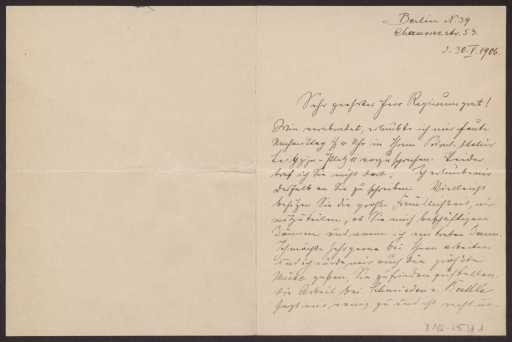 Berlin N 39
Chausseestr. 53.
d. 30. V. 1906.
Sehr geehrter Herr Regierungsrat!
Wie verabredet, erlaubte ich mir heute
Nachmittag Uhr in Ihrem Privat-Atelier
Leipziger Platz 11 vorzusprechen. Leider
traf ich Sie nicht dort. Ich erlaube mir
deshalb an Sie zu schreiben. Vielleicht
besitzen Sie die große Freundlichkeit, mir
mitzuteilen, ob Sie mich beschäftigen
können und wann ich eintreten kann.
Ich möchte sehr gerne bei Ihnen arbeiten
und ich würde mir auch die größte
Mühe geben, Sie zufrieden zu stellen.
Die Arbeit bei Schmieden &
sagt mir wenig zu und ist nicht